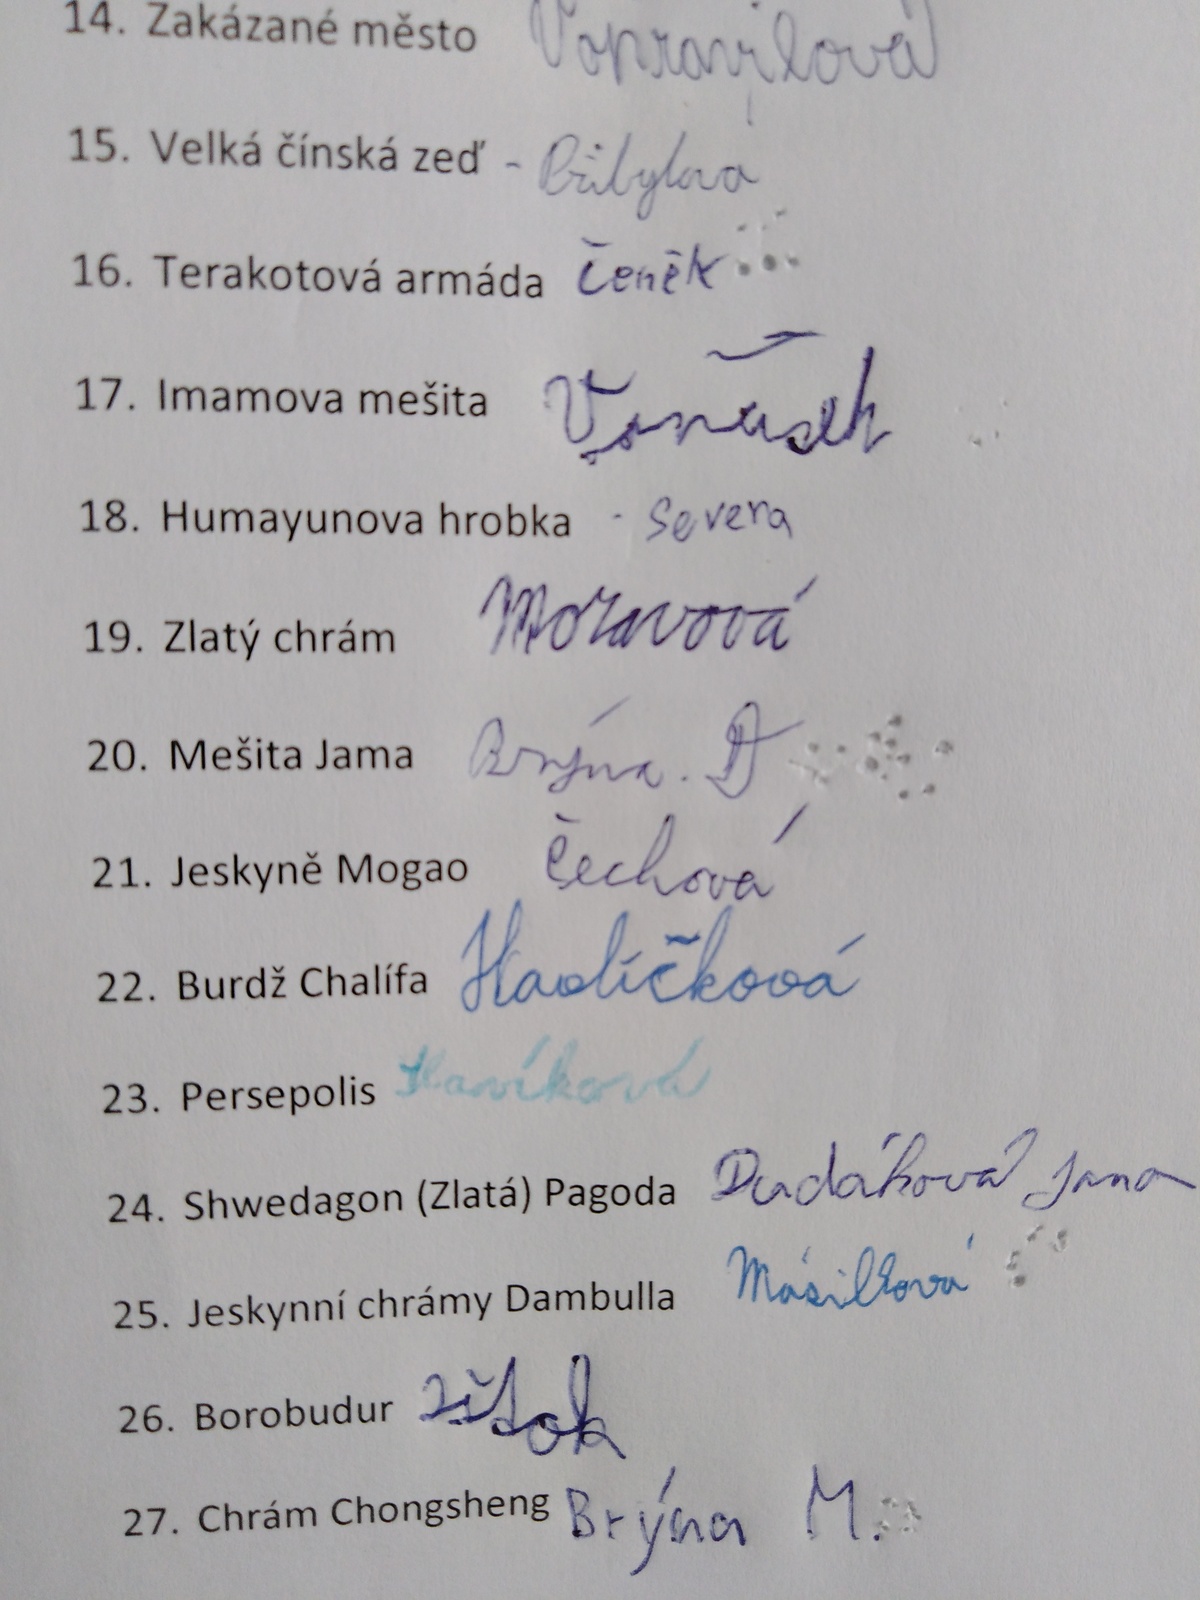 14. Zakázané město Vopravilová
15. Velká čínská zeď - Přibylova
16. Terakotová armáda Čeněk
17. Imamova mešita
18. Humayunova hrobka - Severa
19. Zlatý chrám Moravová
20. Mešita Jama Brýna. D
21. Jeskyně Mogao Čechová
22. Burdž Chalífa Havlíčková
23. Persepolis Havíková
24. Shwedagon (Zlatá) Pagoda Dudáková Jana
25. Jeskynní chrámy Dambulla Másilková
26. Borobudur
27. Chrám Chongsheng Brýna M.